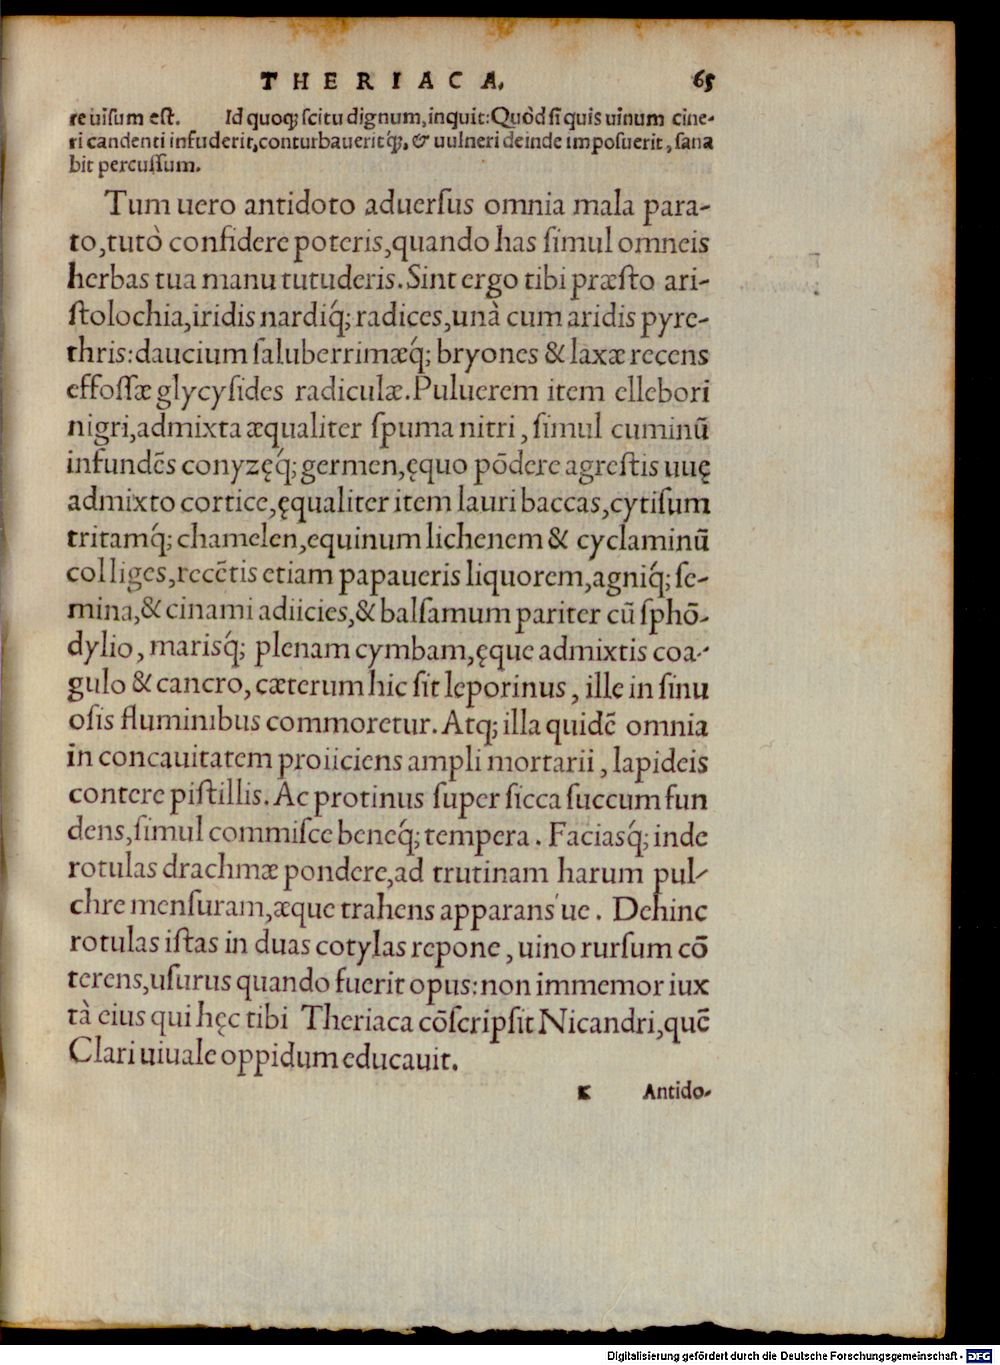 THERIACA. 65
re uiſum eſt. Id quoq; ſcitu dignum, inquit: Quòd ſi quis uinum cine-
ri candenti infuderit, conturbaueritq́;, & uulneri deinde impoſuerit, ſana
bit percuſſum.
Tum uero antidoto aduerſus omnia mala para-
to, tutò confidere poteris, quando has ſimul omneis
herbas tua manu tutuderis. Sint ergo tibi præſto ari-
ſtolochia, iridis nardiq́; radices, unà cum aridis pyre-
thris: daucium ſaluberrimæq́; bryones & laxæ recens
effoſſæ glycyſides radiculæ. Puluerem item ellebori
nigri, admixta æqualiter ſpuma nitri, ſimul cuminū
infundēs conyzęq́; germen, ęquo pōdere agreſtis uuę
admixto cortice, ęqualiter item lauri baccas, cytiſum
tritamq́; chamelen, equinum lichenem & cyclaminū
colliges, recētis etiam papaueris liquorem, agniq́; ſe-
mina, & cinami adiicies, & balſamum pariter cū ſphō-
dylio, marisq́; plenam cymbam, ęque admixtis coa-
gulo & cancro, cæterum hic ſit leporinus, ille in ſinu
oſis fluminibus commoretur. Atq; illa quidē omnia
in concauitatem proiiciens ampli mortarii, lapideis
contere piſtillis. Ac protinus ſuper ſicca ſuccum fun
dens, ſimul commiſce beneq́; tempera. Faciasq́; inde
rotulas drachmæ pondere, ad trutinam harum pul-
chre menſuram, æque trahens apparans'ue. Dehinc
rotulas iſtas in duas cotylas repone, uino rurſum cō
terens, uſurus quando fuerit opus: non immemor iux
tà eius qui hęc tibi Theriaca cōſcripſit Nicandri, quē
Clari uiuale oppidum educauit.
K Antido-
Digitalisierung gefördert durch die Deutsche Forschungsgemeinschaft - DFG